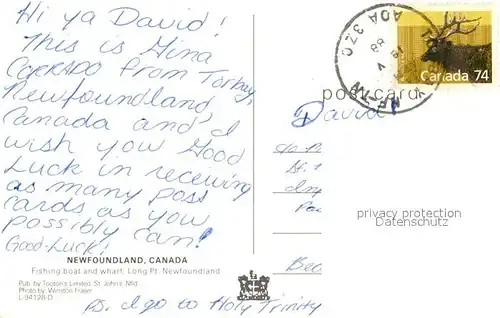 Hi ya David!
This is Gina
CORRADO from Torbay,
Newfoundland,
Canada and I
wish you Good
Luck in receiving
as many post
cards as you
possibly can!
Good-Luck!
NEWFOUNDLAND, CANADA
Fishing boat and wharf, Long Pt. Newfoundland
Pub. by Tooton's Limited, St. John's, Nfld.
Photo by Winston Fraser
L-94128-D
Ps. I go to Holy Trinity
A0A 3Z0
88
NF
Canada 74
post card
David
c/o
St.
privacy protection
Datenschutz